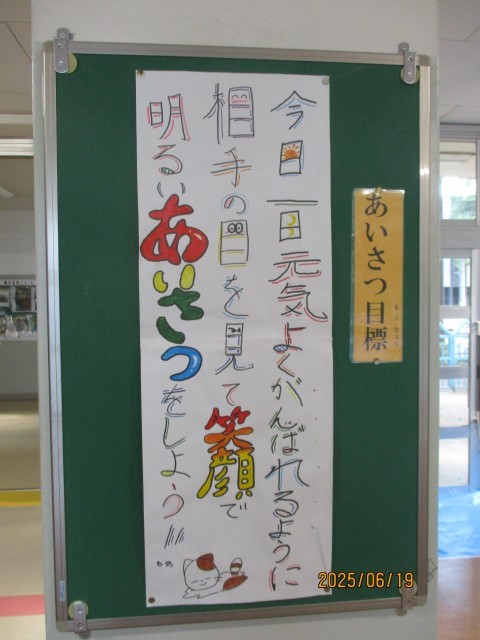 あいさつ目標
もくひょう
今日一日元気よくがんばれるように
相手の目を見て笑顔で
明るいあいさつをしよう!!!
2025/06/19